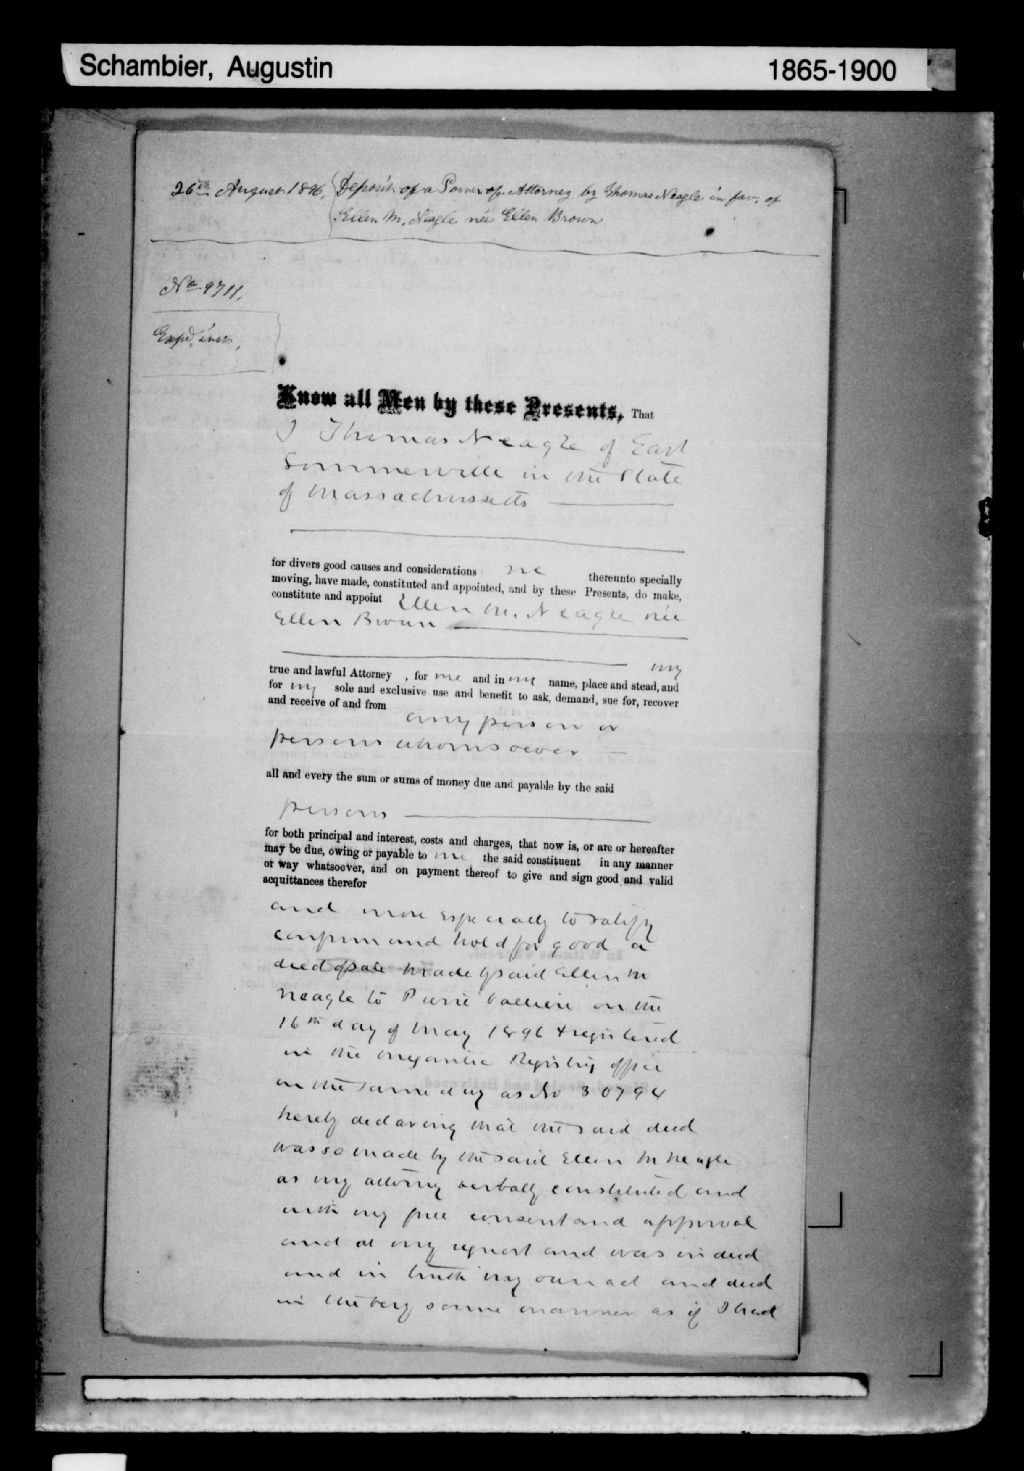 Schambier, Augustin 1865-1900
26th August 1896. Deposit of a Power of Attorney by Thomas Neagle in fav. of
Ellen M. Neagle née Ellen Brown
No. 9711.
Know all Men by these Presents, That
I Thomas Neagle of East
Sommerville in the State
of Massachussetts
for divers good causes and considerations me thereunto specially
moving, have made, constituted and appointed, and by these Presents, do make,
constitute and appoint Ellen M. Neagle née
Ellen Brown
my
true and lawful Attorney , for me and in my name, place and stead, and
for my sole and exclusive use and benefit to ask, demand, sue for, recover
and receive of and from any person or
persons whomsoever
all and every the sum or sums of money due and payable by the said
persons
for both principal and interest, costs and charges, that now is, or are or hereafter
may be due, owing or payable to me the said constituent in any manner
or way whatsoever, and on payment thereof to give and sign good and valid
acquittances therefor
and more especially to ratify
confirm and hold for good a
deed of sale made by said Ellen M
Neagle to Pierre on the
16th day of May 1896 & registered
in the Megantic Registry office
on the same day as No 30794
hereby declaring that the said deed
was so made by the said Ellen M Neagle
as my attorney verbally constituted and
with my full consent and approval
and at my request and was indeed
and in truth my own act and deed
in the very same manner as if I had